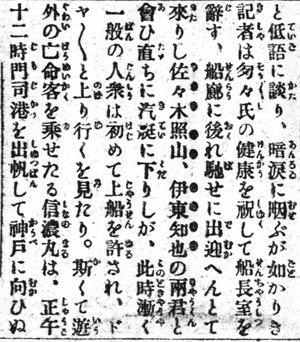 と低語に談り、暗涙に咽ぶが如かりき
記者は匆々氏の健康を祝して船長室を
辭す、船廊に後れ馳せに出迎へんとて
來りし佐々木照山、伊東知也の兩君と
會ひ直ちに汽艇に下りしが、此時漸く
一般の人衆は初めて上船を許され、ド
ヤ〱と上り行くを見たり。斯くて遊
外の亡命客を乘せたる信濃丸は、正午
十二時門司港を出帆して神戸に向ひぬ